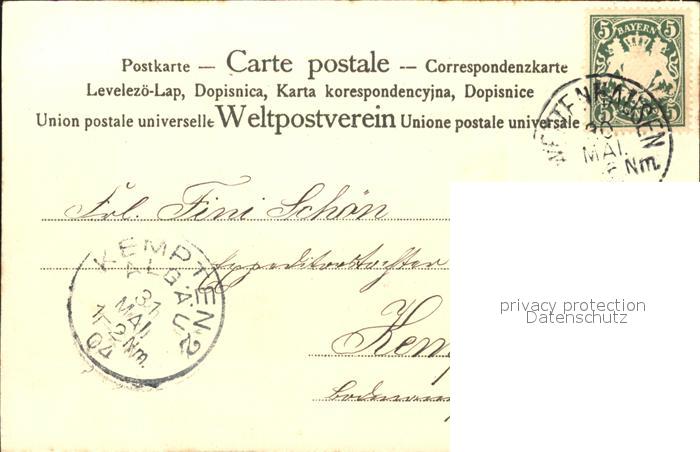 5 BAYERN 5
Postkarte — Carte postale — Correspondenzkarte
Levelező-Lap, Dopisnica, Karta korespondencyjna, Dopisnice
Union postale universelle Weltpostverein Unione postale universale
30
MAI.
Nm.
Frl. Fini Schön
Expeditorstochter
KEMPTEN 2
ALGÄU
31
MAI
1-2 Nm.
04
privacy protection
Datenschutz